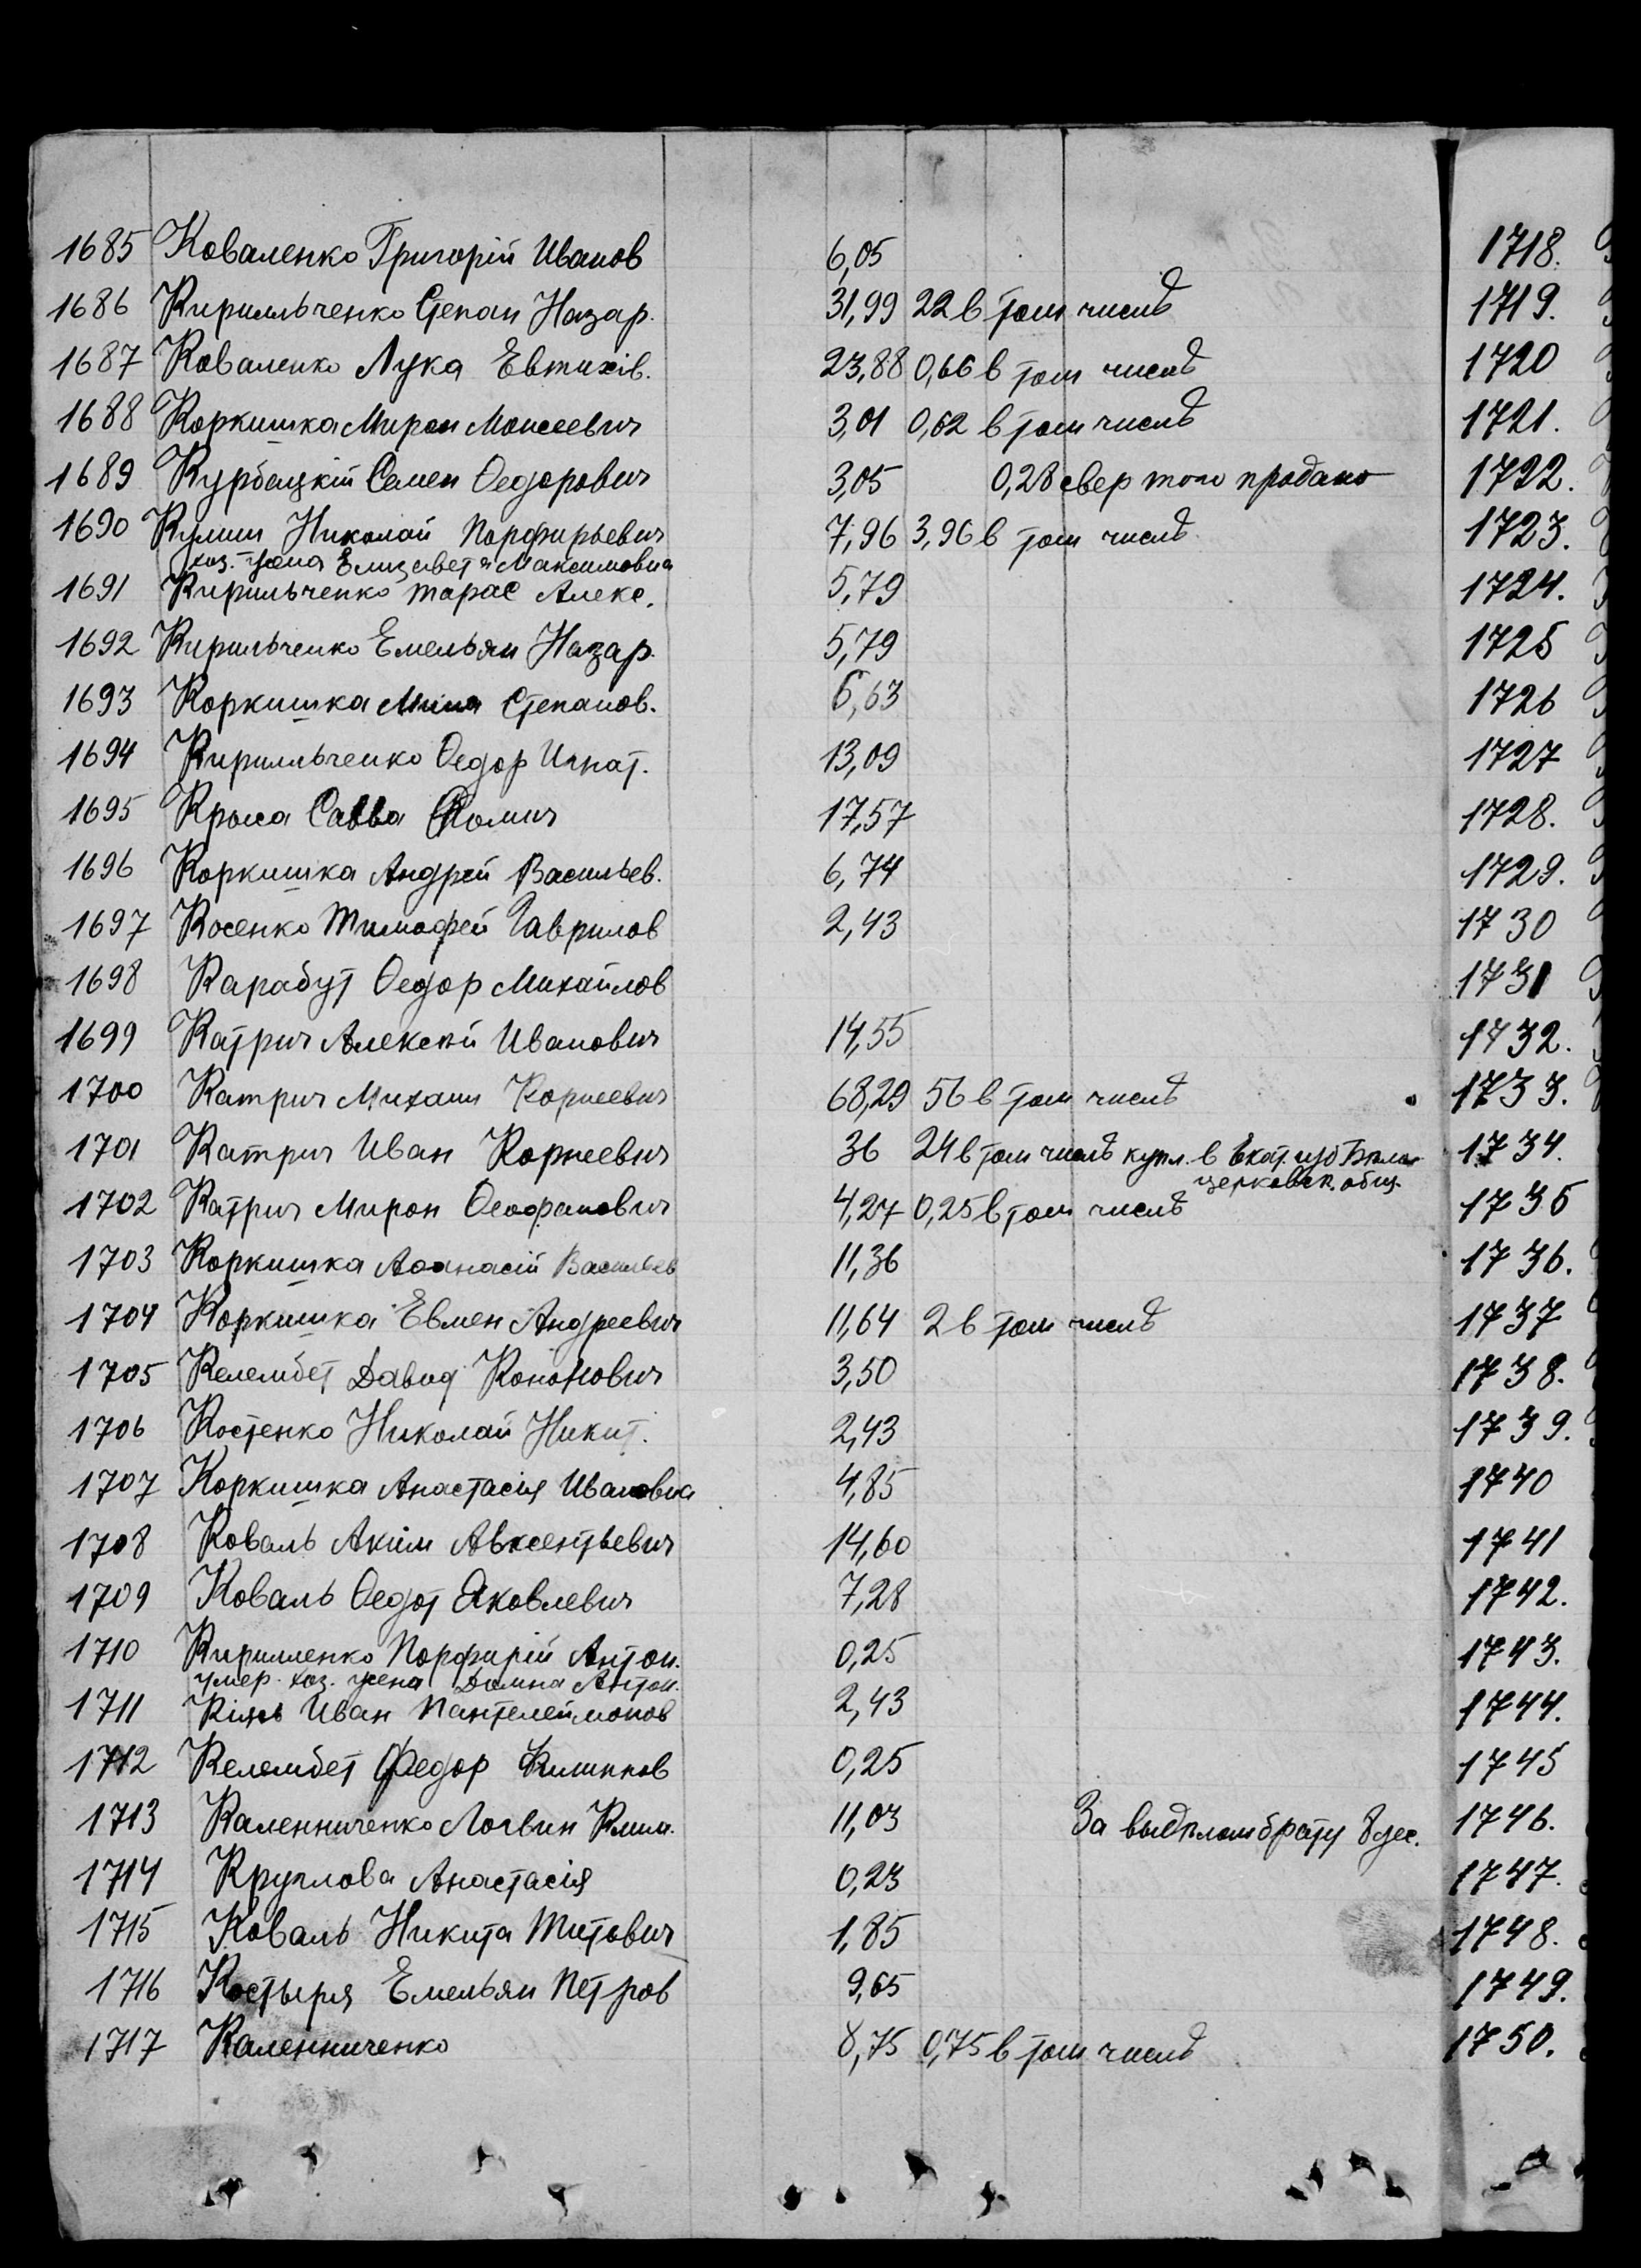 1685 Коваленко Григорій Иванов 6,05
1686 Кирильченко Степан Назар. 31,99 22 в том числѣ
1687 Коваленко Лука Евтихів. 23,88 0,66 в том числѣ
1688 Коркишка Мирон Моисеевич 3,01 0,62 в том числѣ
1689 Курбацкій Семен Ѳедорович 3,05 0,28 свер того продано
1690 Кулиш Николай Порфирьевич 7,96 3,96 в том числѣ
хоз. жена Елизавета Максимовна
1691 Кирильченко Тарас Алекс. 5,79
1692 Кирильченко Емельян Назар. 5,79
1693 Коркишка Мина Степанов. 6,63
1694 Кирильченко Ѳедор Игнат. 13,09
1695 Кроха Савва Фомич 17,57
1696 Коркишка Андрей Васильев. 6,74
1697 Косенко Тимофей Гаврилов 2,43
1698 Карабут Ѳедор Михайлов
1699 Катрич Алексѣй Иванович 14,55
1700 Катрич Михаил Корнеевич 68,29 56 в том числѣ
1701 Катрич Иван Корнеевич 36 24 в том числѣ купл. в Екат. изб Бѣло-
церковск. общ.
1702 Катрич Мирон Ѳеофанович 4,27 0,25 в том числѣ
1703 Коркишка Аѳанасій Васильев 11,36
1704 Коркишка Евмен Андреевич 11,64 2 в том числѣ
1705 Келембет Давид Кононович 3,50
1706 Костенко Николай Никит. 2,43
1707 Коркишка Анастасія Ивановна 4,85
1708 Коваль Аким Авксентьевич 14,60
1709 Коваль Ѳедот Яковлевич 7,28
1710 Кириленко Порфирій Антон. 0,25
умер. хоз. жена Домна Антон.
1711 Кіяль Иван Пантелеймонов 2,43
1712 Келембет Федор 0,25
1713 Каленниченко Логвин Клим. 11,03 За выдѣлом брату 8 дес.
1714 Круглова Анастасія 0,23
1715 Коваль Никита Титович 1,85
1716 Костыря Емельян Петров 9,65
1717 Каленниченко 8,75 0,75 в том числѣ
1718.
1719.
1720
1721.
1722.
1723.
1724.
1725
1726
1727
1728.
1729.
1730
1731
1732.
1733.
1734.
1735
1736.
1737
1738.
1739.
1740
1741
1742.
1743.
1744.
1745
1746.
1747.
1748.
1749.
1750.